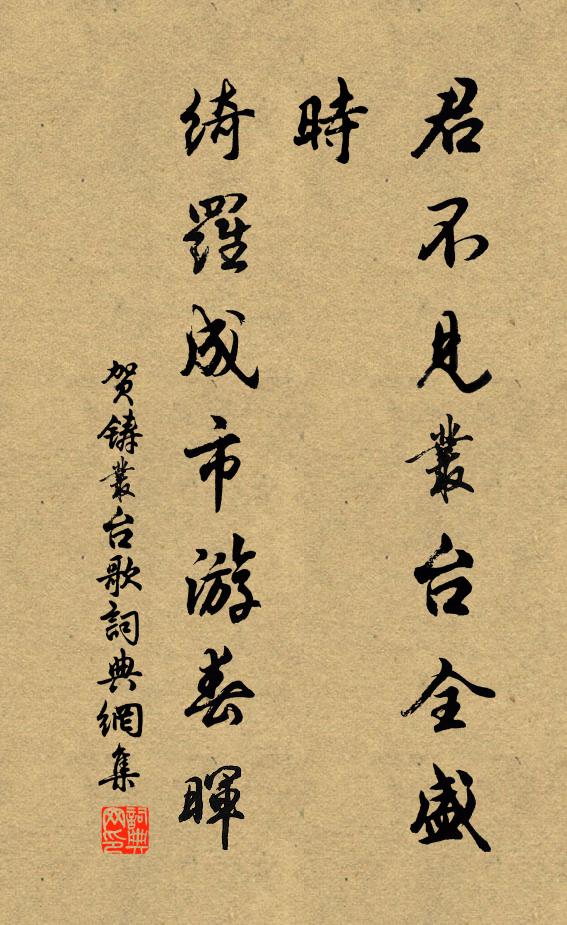 君不見叢台全盛
時
綺羅成市游春暉
贺鑄叢台歌詞典網集
詞典网印